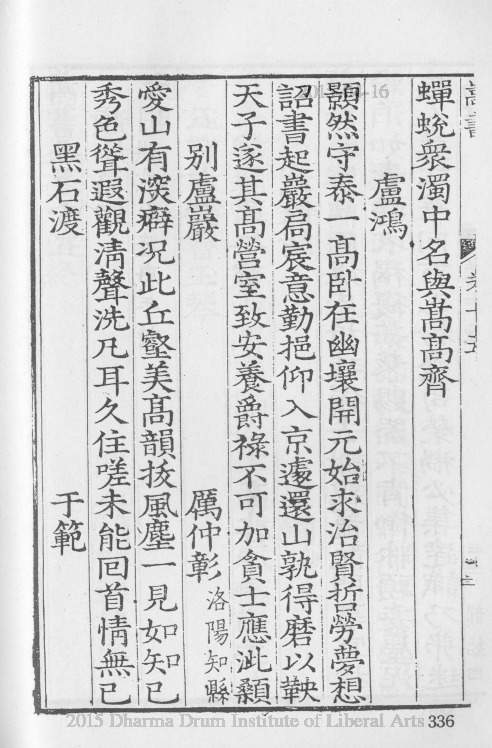 嵩書 卷十五
蟬蛻衆濁中名與嵩高齊
盧鴻
顥然守泰一高卧在幽壤開元始求治賢哲勞夢想
詔書起巖扃宸意勤挹仰入京遽還山孰得磨以鞅
天子遂其高營室致安養爵祿不可加貪士應泚顙
别盧巖 厲仲彰 洛陽知縣
愛山有深癖况此丘壑美高韻拔風塵一見如知己
秀色聳遐觀淸聲洗凡耳久住嗟未能回首情無已
黑石渡 于範
2015 Dharma Drum Institute of Liberal Arts 336